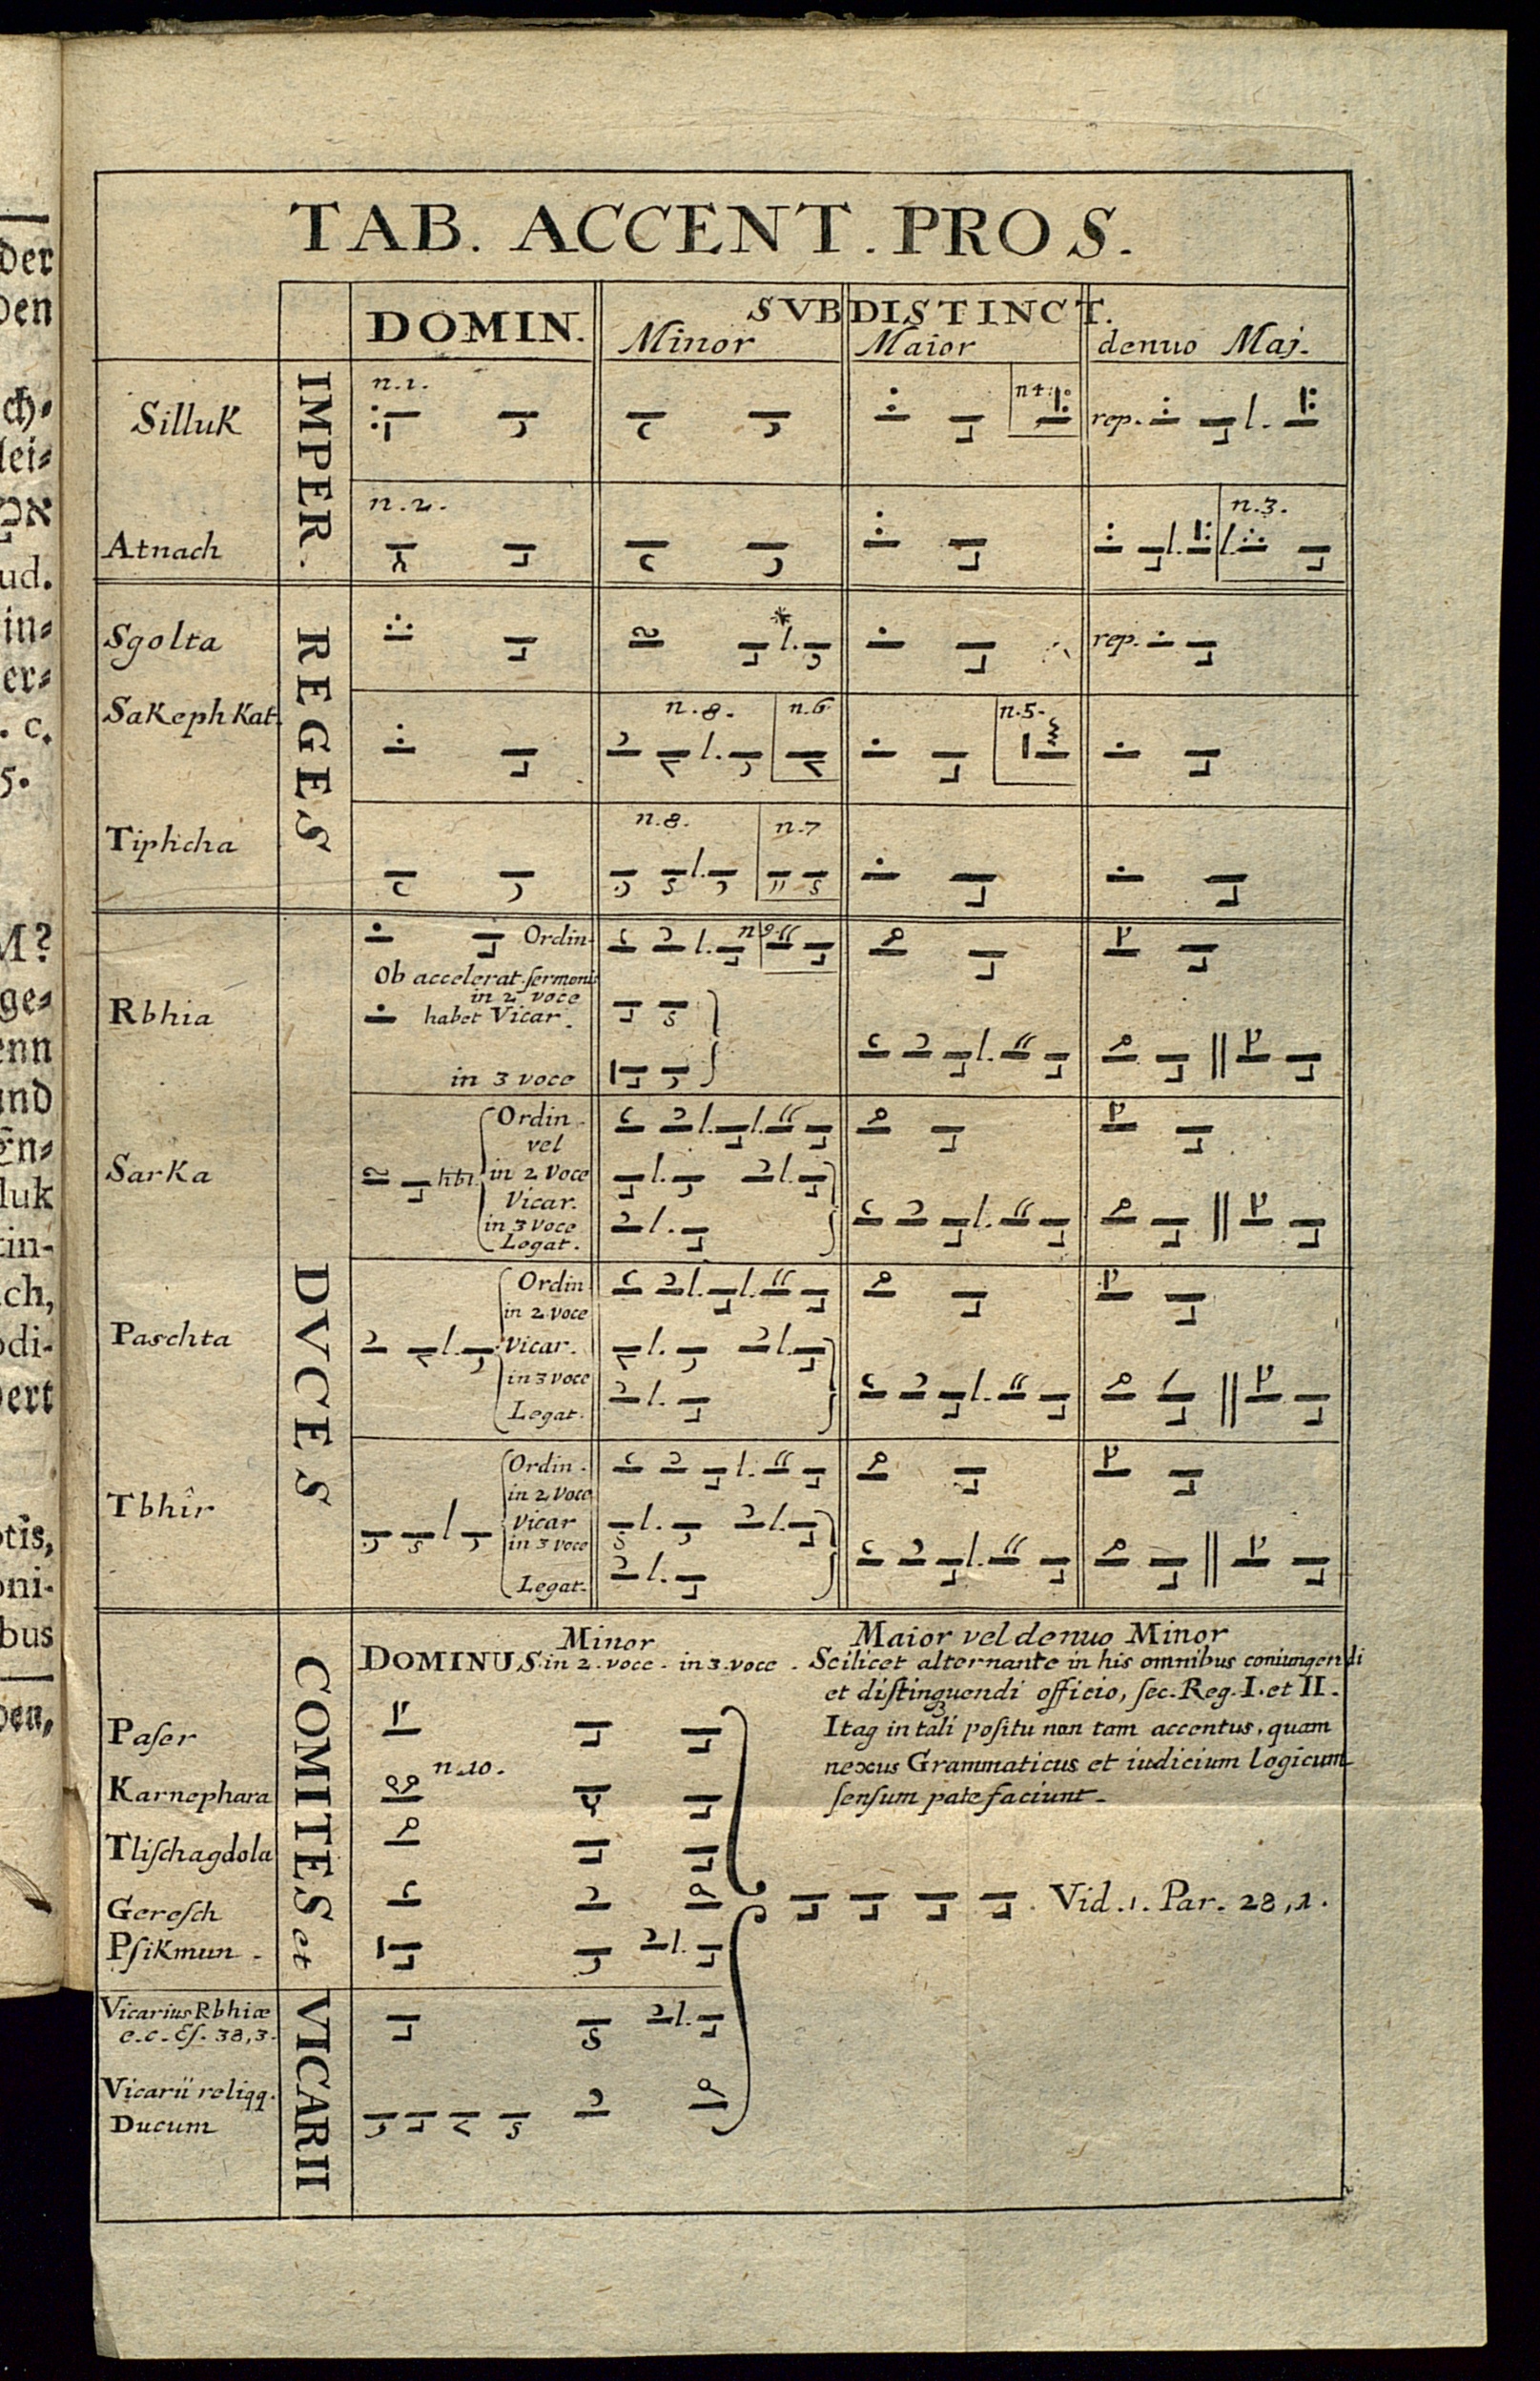 TAB. ACCENT. PROS.
DOMIN.
SVBDISTINCT.
Minor
Maior
denuo Maj.
IMPER.
Silluk
n.1.
n4.
rep.
l.
Atnach
n.2.
l.
n.3.
l.
REGES
Sgolta
*
l.
rep.
Sakeph Kat.
n.8.
l.
n.6
n.5.
Tiphcha
n.8.
l.
n.7
DVCES
Rbhia
Ordin.
Ob accelerat. ſermonis
in 2 voce
habet Vicar.
in 3 voce
l.
n9.
l.
Sarka
hbt
Ordin.
vel
in 2 Voce
Vicar.
in 3 Voce
Legat.
l. l.
l. l.
l.
l.
Paschta
l.
Ordin
in 2 voce
Vicar.
in 3 voce
Legat.
l. l.
l. l.
l.
l.
Tbhîr
l
Ordin.
in 2 Voce
Vicar
in 3 voce
Legat.
l.
l. l.
l.
l.
COMITES et VICARII
DOMINUS.
Minor
in 2. voce. in 3. voce.
Maior vel denuo Minor
Scilicet alternante in his omnibus coniungendi
et diſtinguendi officio, ſec. Reg. I. et II.
Itaq in tali poſitu non tam accentus, quam
nexus Grammaticus et iudicium logicum
ſenſum patefaciunt.
Paſer
n.10.
Karnephara
Tliſchagdola
Gereſch
Vid. 1. Par. 28, 1.
Pſikmun.
l.
Vicarius Rbhiæ
e.c. Eſ. 38,3.
l.
Vicarii reliqq.
Ducum
der
den
ch⸗
lei⸗
ud.
in⸗
er⸗
. c.
5.
M?
ge⸗
enn
und
En⸗
luk
tin-
ch,
odi-
dert
otis,
oni-
bus
den,